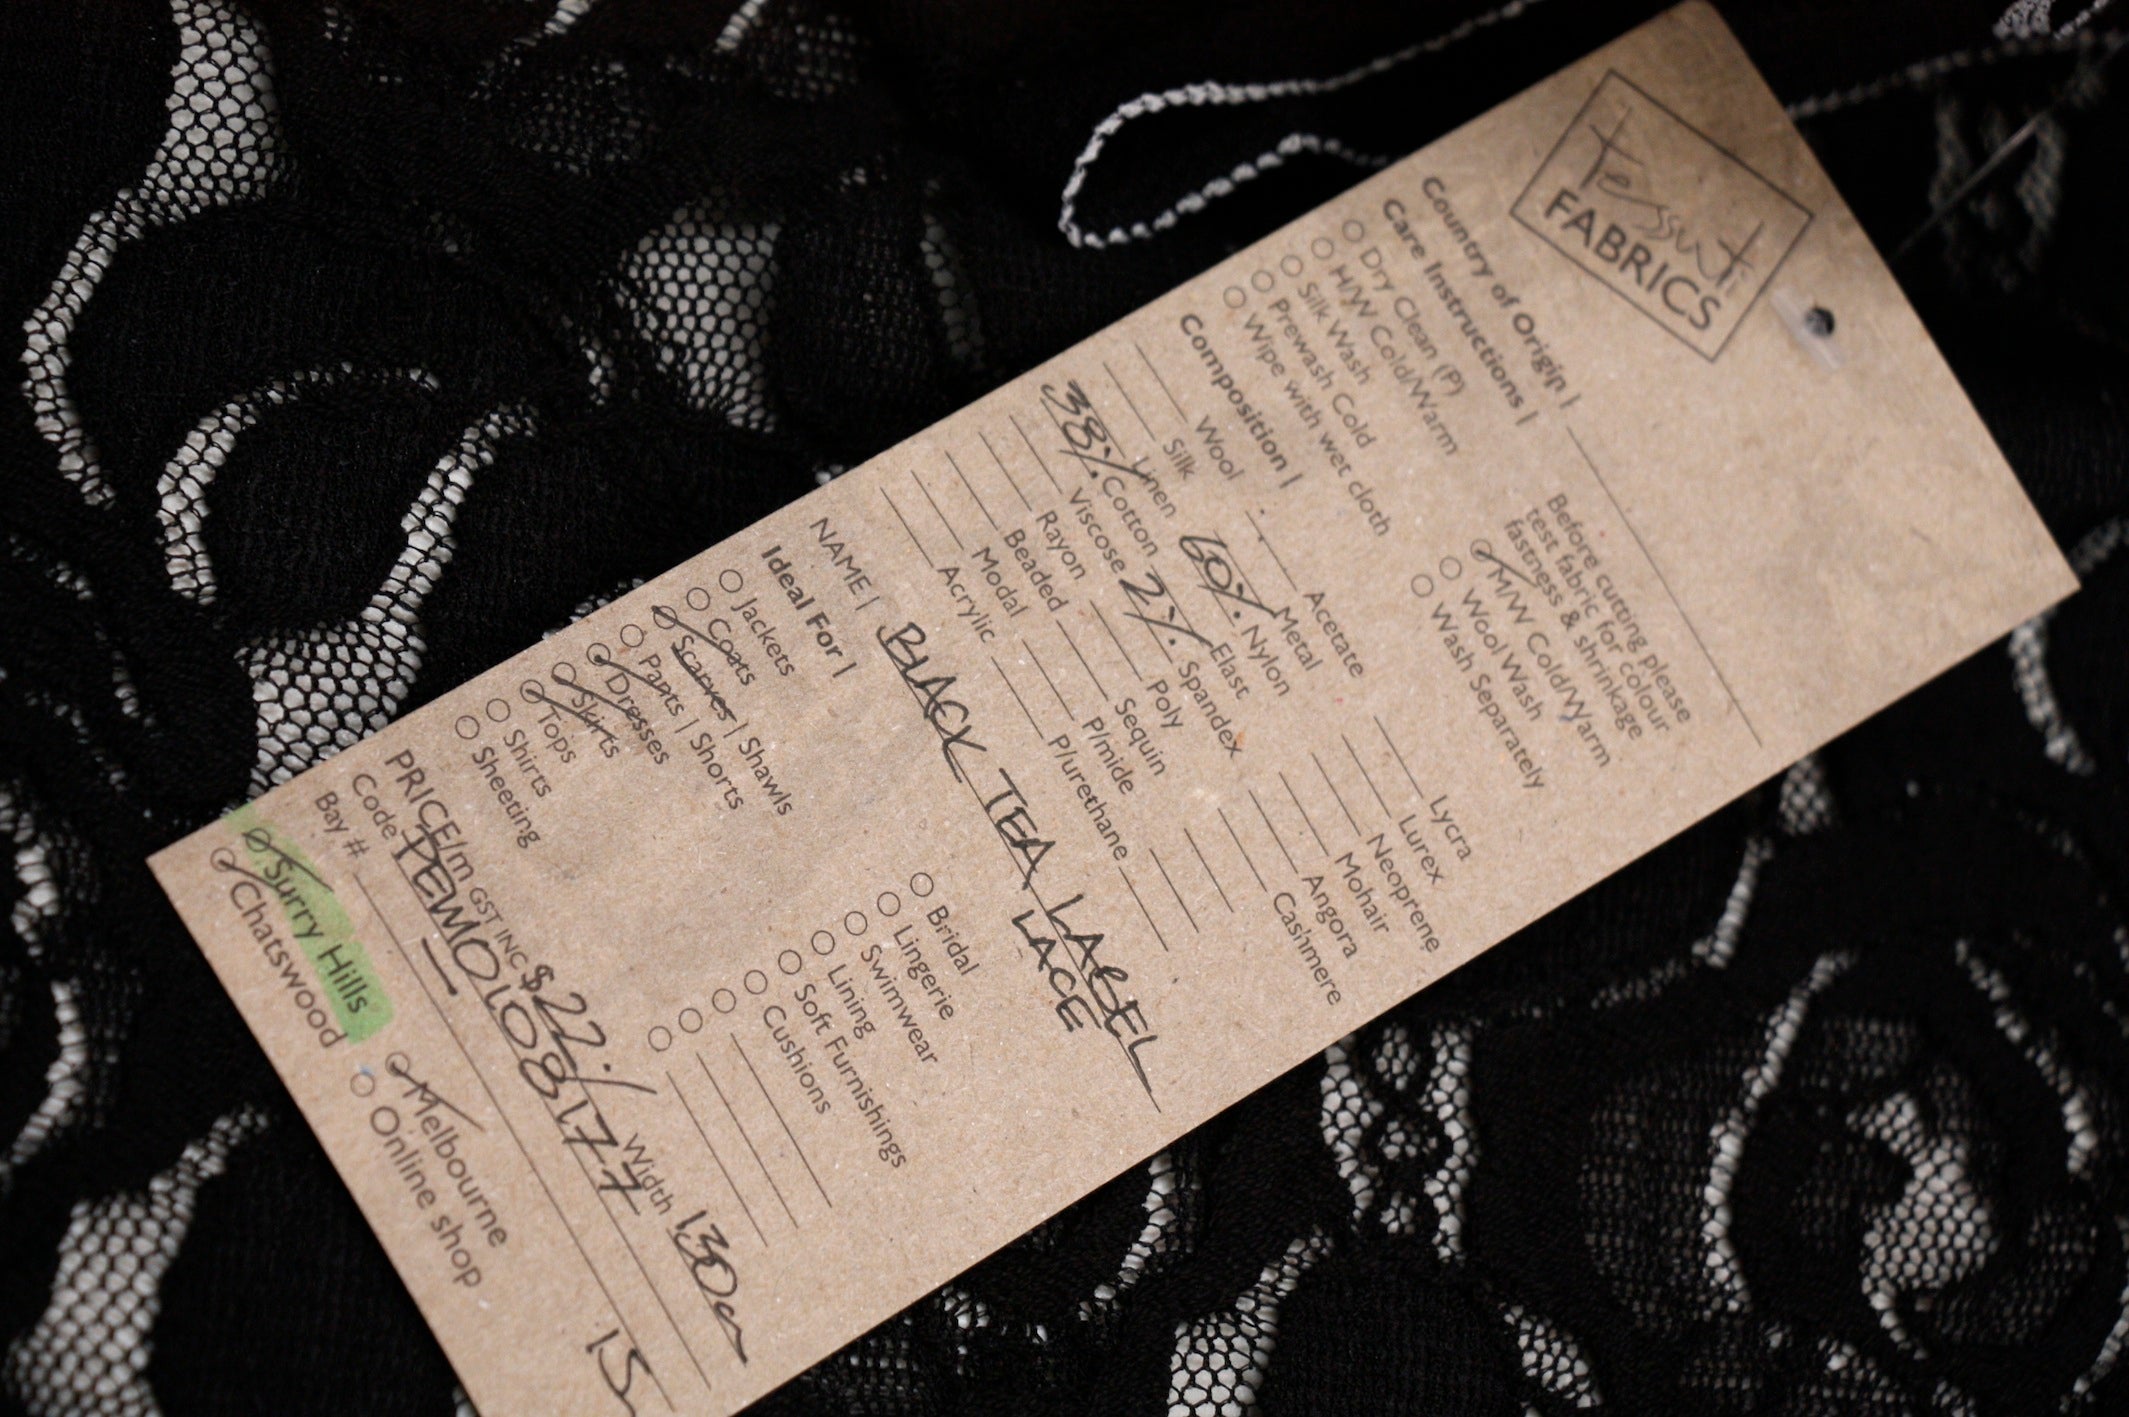 tessuti
FABRICS
Country of Origin |
Care Instructions |
Dry Clean (P)
H/W Cold/Warm
Silk Wash
Prewash Cold
Wipe with wet cloth
Before cutting please
test fabric for colour
fastness & shrinkage
M/W Cold/Warm
Wool Wash
Wash Separately
Composition |
Wool Acetate Lycra
Silk Metal Lurex
Linen 60% Nylon Neoprene
38% Cotton Elast Mohair
Viscose 2% Spandex Angora
Rayon Poly Cashmere
Beaded Sequin
Modal P/mide
Acrylic P/urethane
NAME | BLACK TEA LABEL
LACE
Ideal For |
Jackets
Coats
Scarves | Shawls
Pants | Shorts
Dresses
Skirts
Tops
Shirts
Sheeting
Bridal
Lingerie
Swimwear
Lining
Soft Furnishings
Cushions
PRICE/m GST INC $22./ Width 130cm
Code TEMO108177
Bay # 15
Surry Hills
Chatswood
Melbourne
Online shop